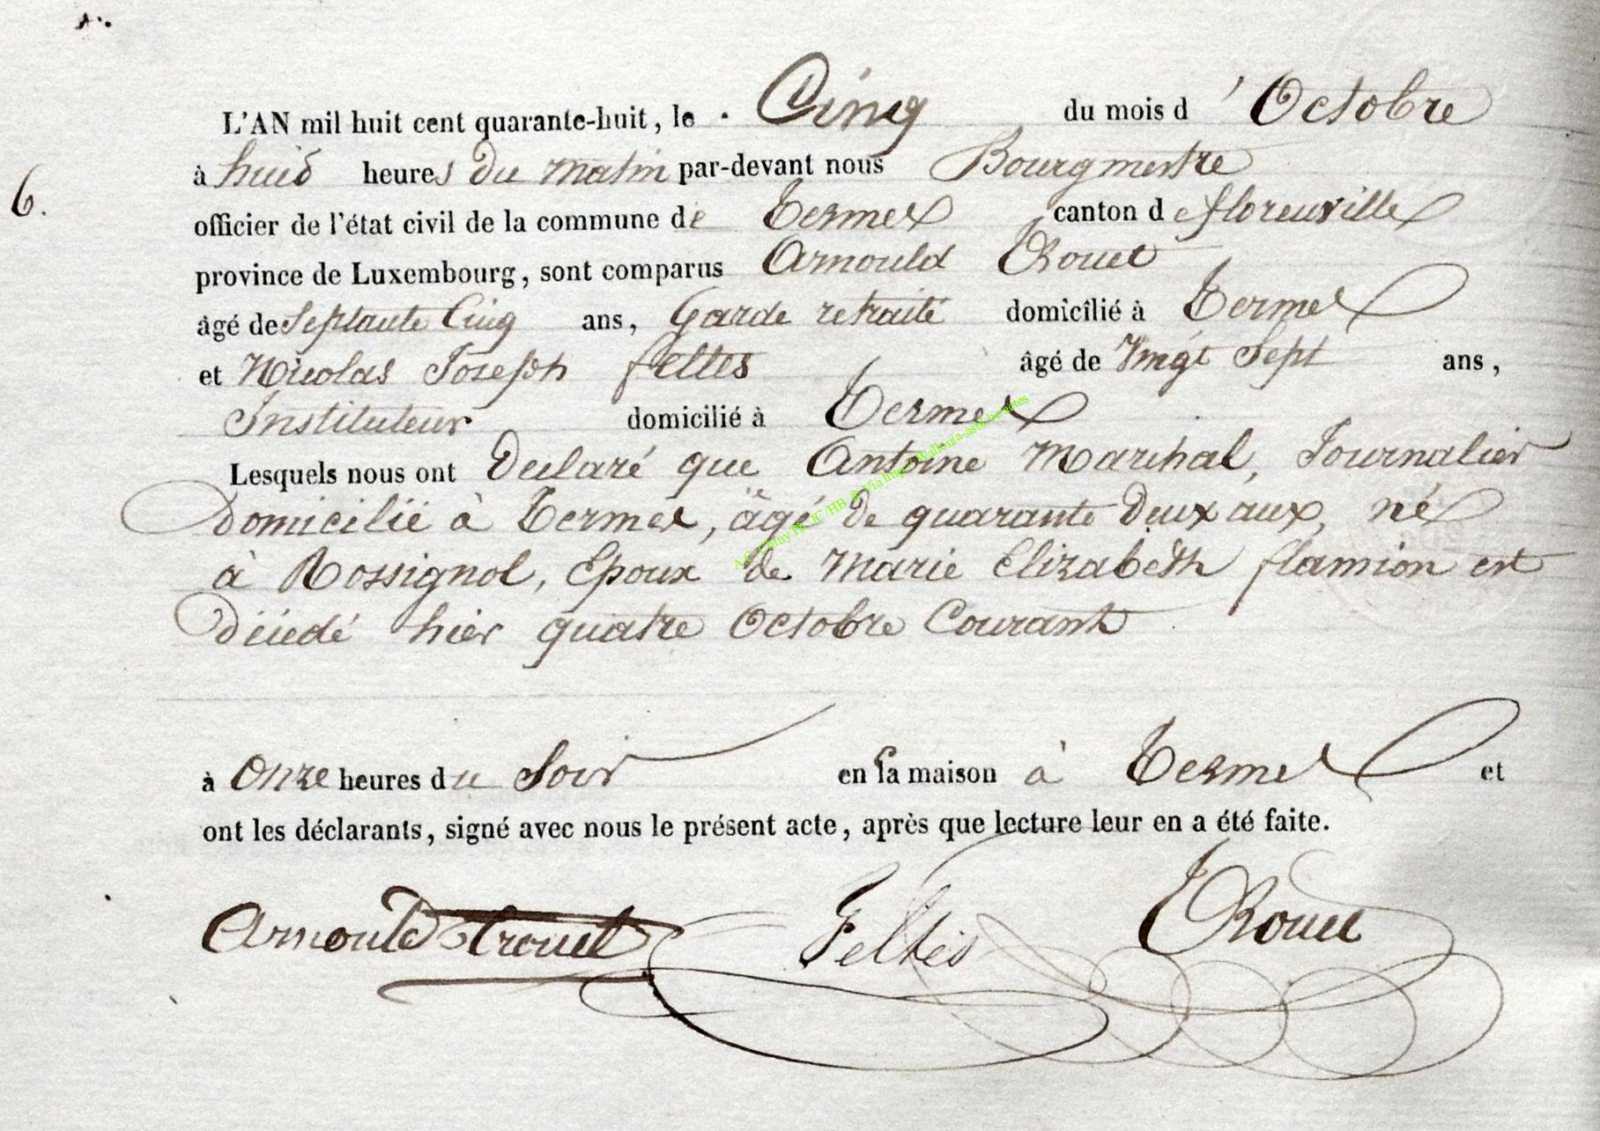 L'AN mil huit cent quarante-huit, le Cinq du mois d'Octobre
6.
à huid heures du matin par-devant nous Bourgmestre
officier de l'état civil de la commune de Termes canton de florenville
province de Luxembourg, sont comparus Arnould Trouet
âgé de Septante Cinq ans, Garde retraité domicilié à Termes
et Nicolas Joseph feltes âgé de Vingt Sept ans,
Instituteur domicilié à Termes
Lesquels nous ont Declaré que Antoine Marihal, Journalier
Domicilié à Termes, âgé de quarante Deux ans, né
à Rossignol, Epoux de Marie Elizabeth flamion est
décédé hier quatre Octobre Courant
à Onze heures du Soir en sa maison à Termes et
ont les déclarants, signé avec nous le présent acte, après que lecture leur en a été faite.
Arnould Trouet Feltes Trouet